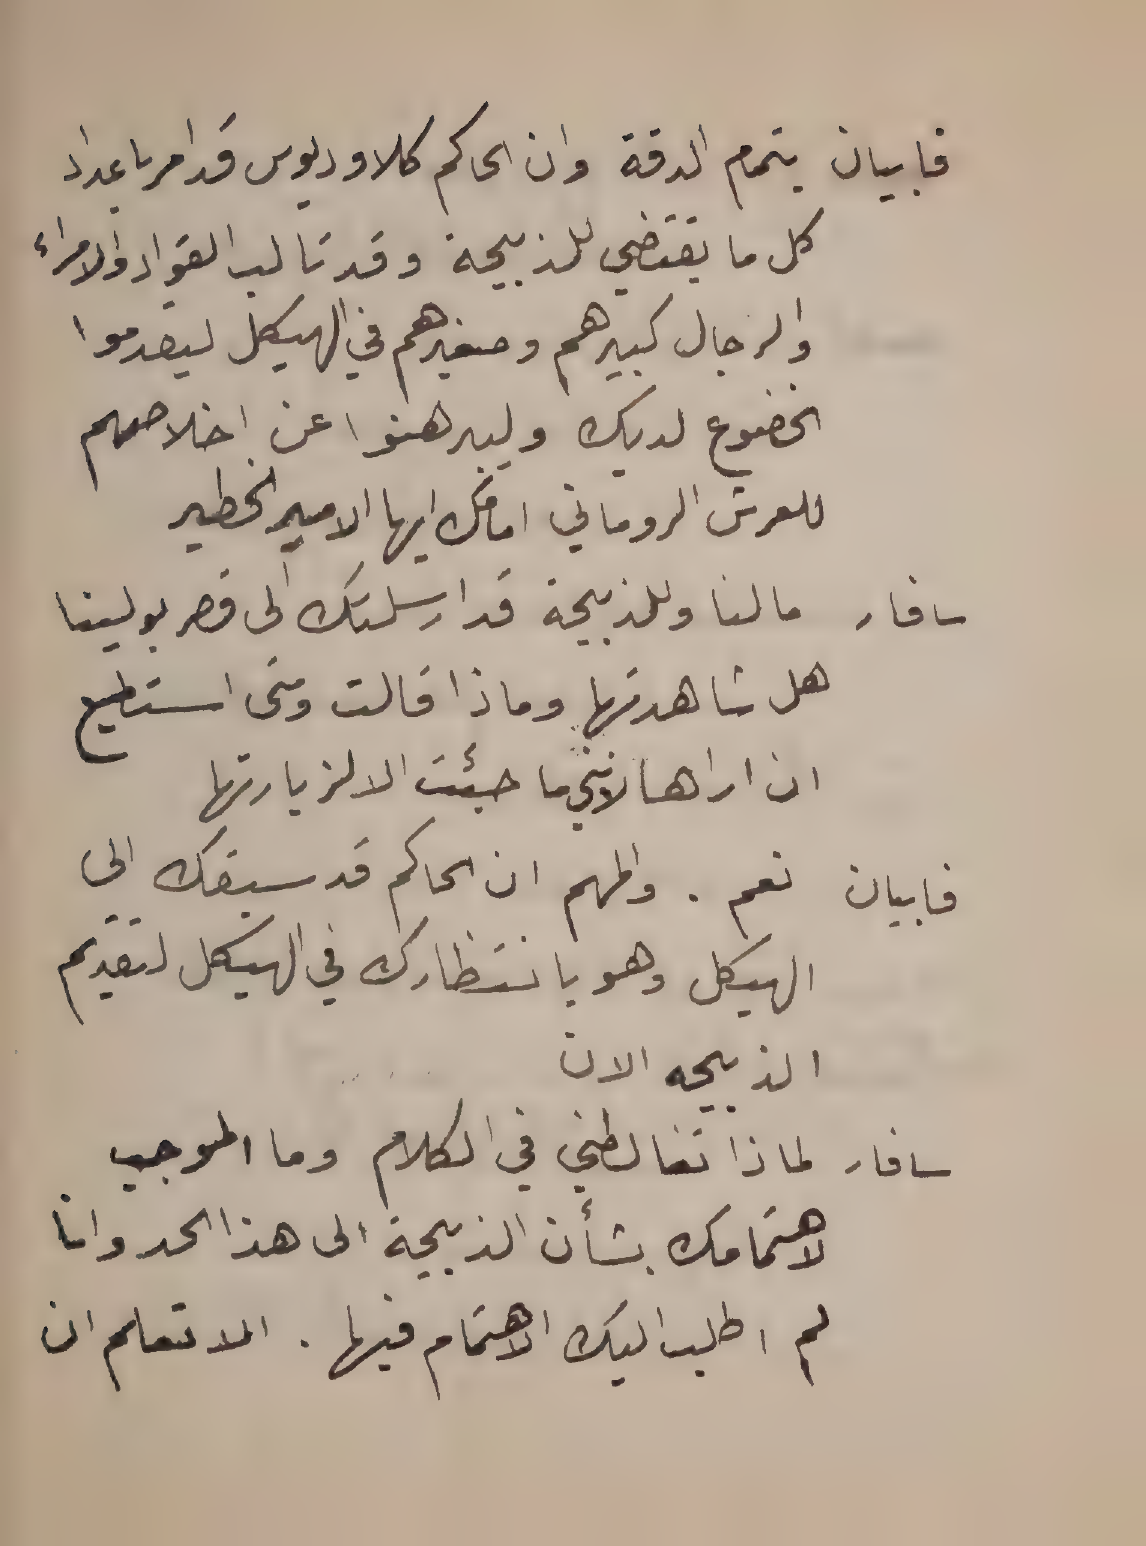 فابيان يتمم الدقة وان الحاكم كلاوديوس قد امر باعداد
كل ما يقتضي للذبيحة وقد تالب القواد والامراء
والرجال كبيرهم وصغيرهم في الهيكل ليقدموا
الخضوع لديك وليبرهنوا عن اخلاصهم
للعرش الروماني امامك ايها الامير الخطير
سافار مالنا وللذبيحة قد ارسلتك الى قصر بولينا
هل شاهدتها وماذا قالت ومتى استطيع
ان اراها لانني ما جئت الا لزيارتها
فابيان نعم . والمهم ان الحاكم قد سبقك الى
الهيكل وهو بانتظارك في الهيكل لتقديم
الذبيحه الان
سافار لماذا تغالطني في الكلام وما الموجب
لاهتمامك بشأن الذبيحة الى هذا الحد وانا
لم اطلب اليك الاهتمام فيها . الا تعلم ان